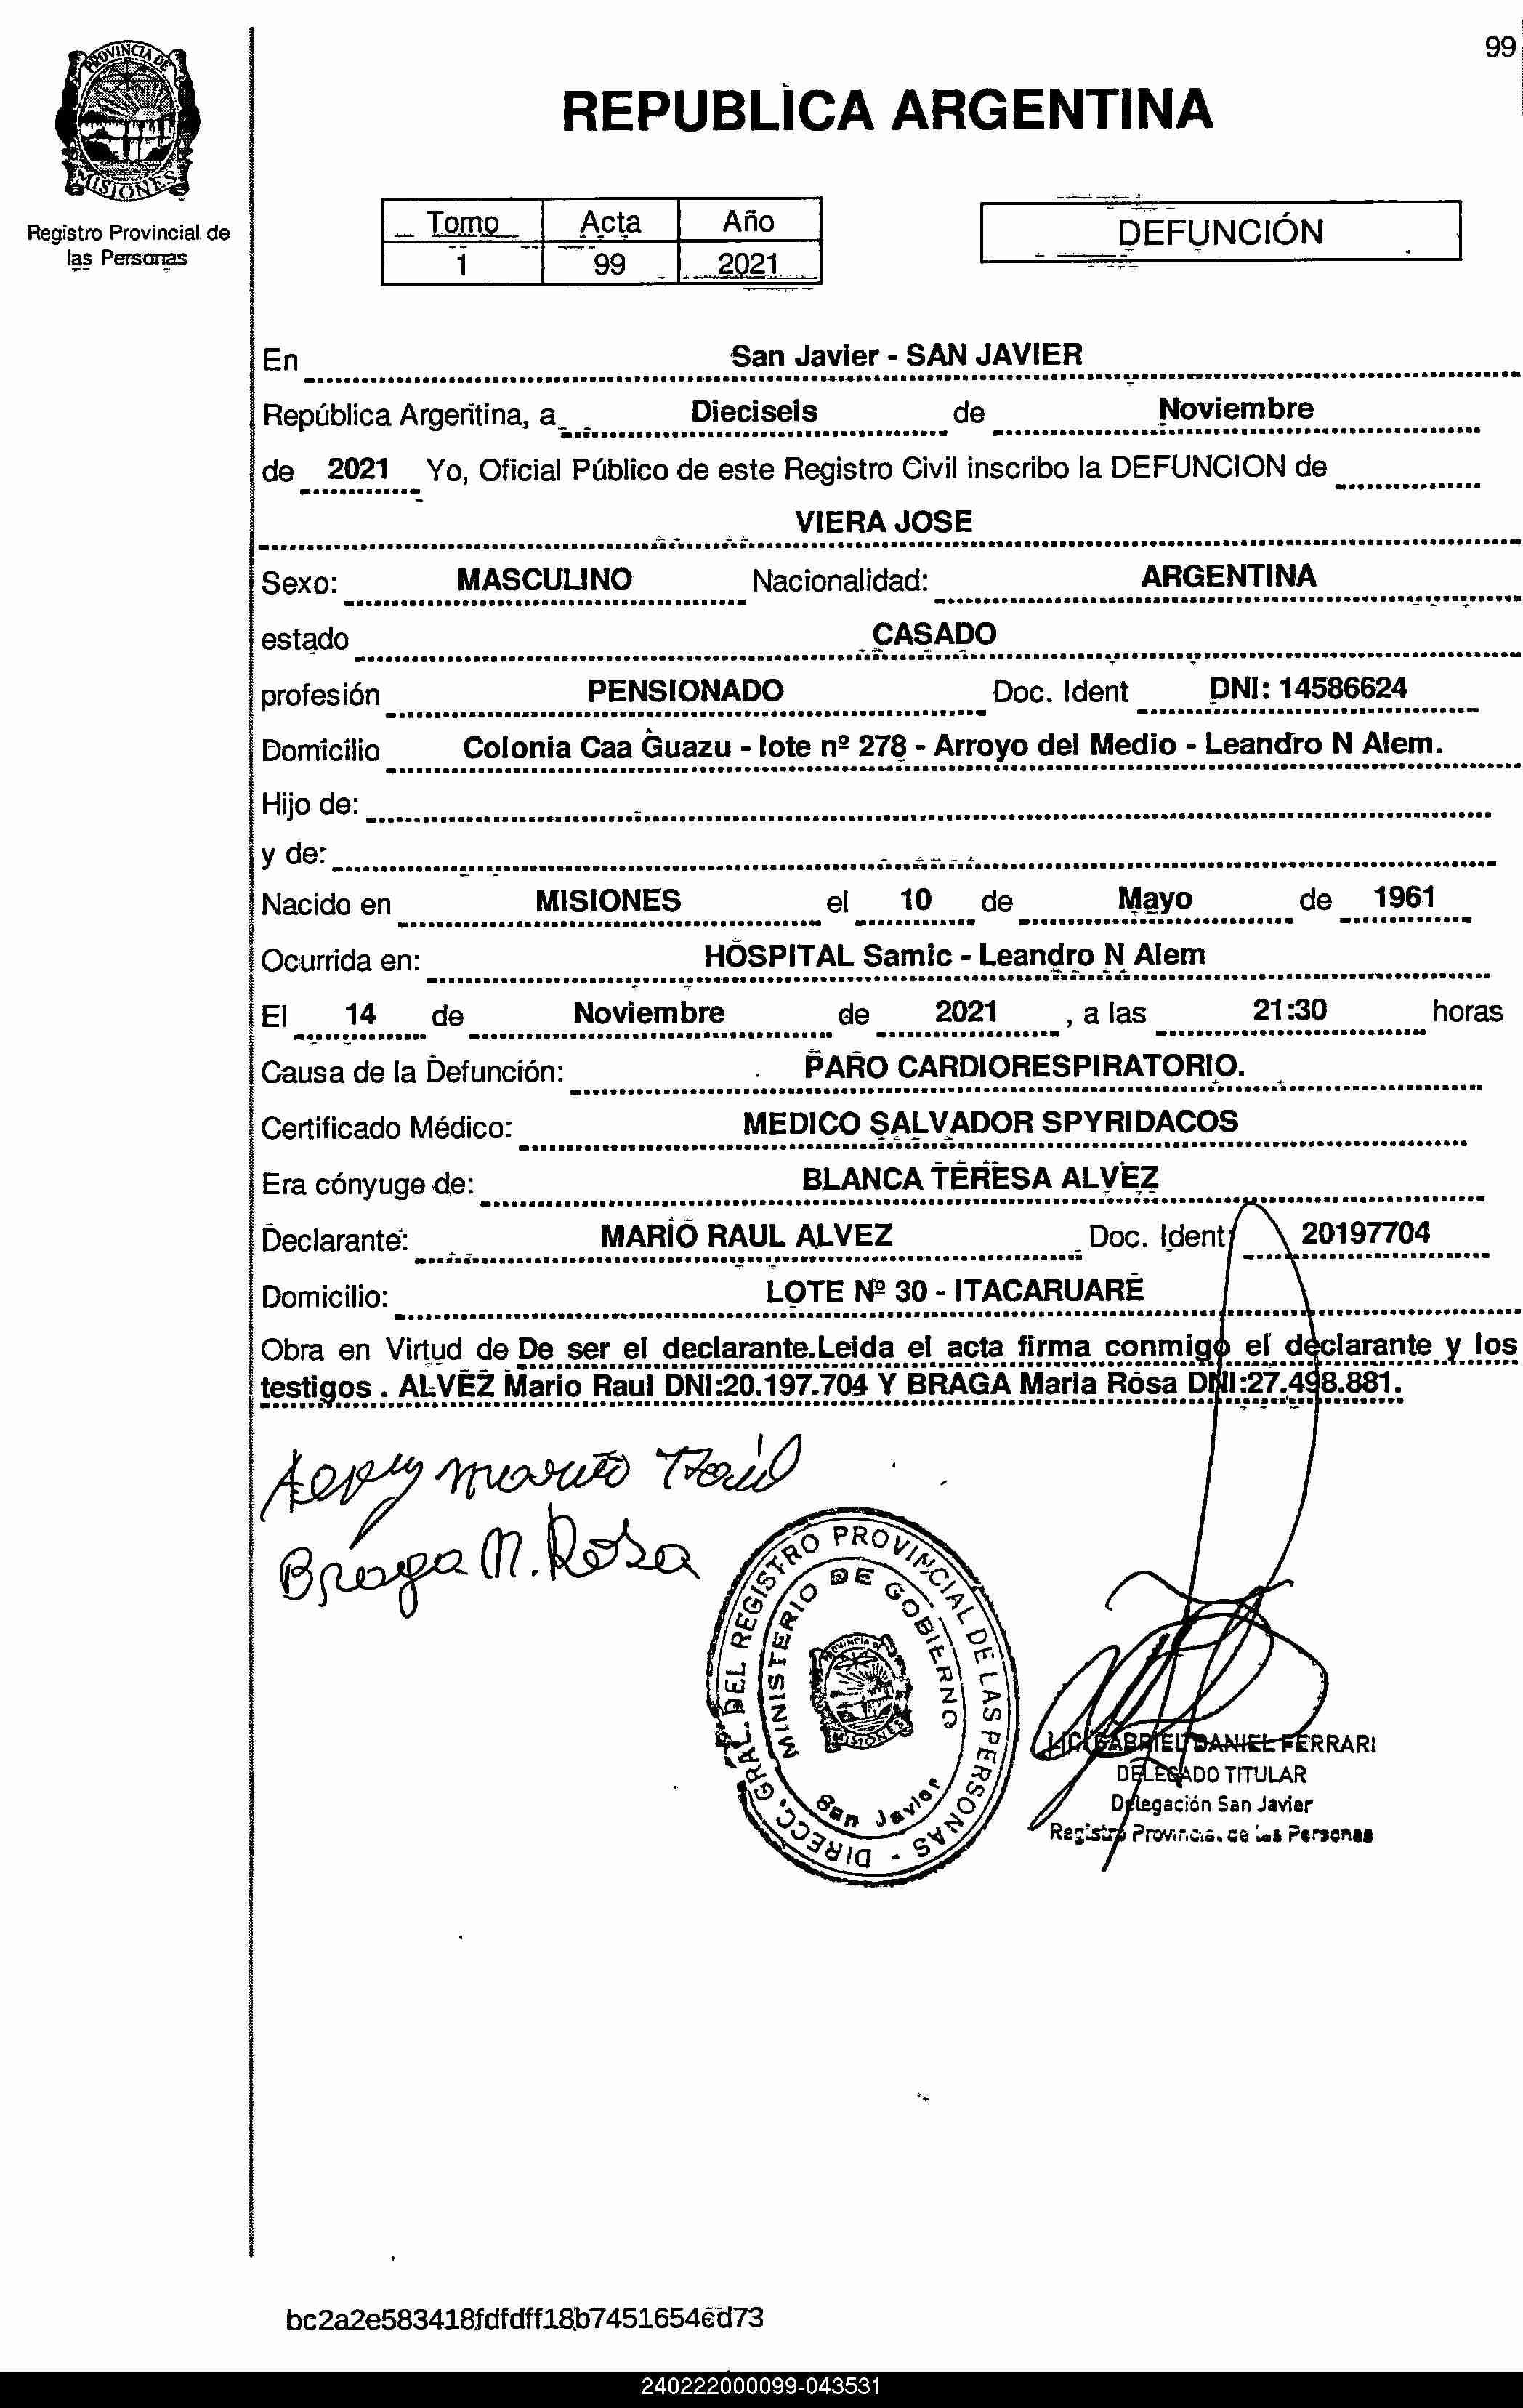 99
PROVINCIA DE
MISIONES
REPUBLICA ARGENTINA
Registro Provincial de
las Personas
Tomo Acta Año
1 99 2021
DEFUNCIÓN
En San Javier - SAN JAVIER
República Argentina, a Dieciseis de Noviembre
de 2021 Yo, Oficial Público de este Registro Civil inscribo la DEFUNCION de
VIERA JOSE
Sexo: MASCULINO Nacionalidad: ARGENTINA
estado CASADO
profesión PENSIONADO Doc. Ident DNI: 14586624
Domicilio Colonia Caa Guazu - lote nº 278 - Arroyo del Medio - Leandro N Alem.
Hijo de:
y de:
Nacido en MISIONES el 10 de Mayo de 1961
Ocurrida en: HOSPITAL Samic - Leandro N Alem
El 14 de Noviembre de 2021 , a las 21:30 horas
Causa de la Defunción: PARO CARDIORESPIRATORIO.
Certificado Médico: MEDICO SALVADOR SPYRIDACOS
Era cónyuge de: BLANCA TERESA ALVEZ
Declarante: MARIO RAUL ALVEZ Doc. Ident 20197704
Domicilio: LOTE Nº 30 - ITACARUARE
Obra en Virtud de De ser el declarante.Leida el acta firma conmigo el declarante y los
testigos . ALVEZ Mario Raul DNI:20.197.704 Y BRAGA Maria Rosa DNI:27.498.881.
Raúl
Braga M. Rosa
DIRECC. GRAL. DEL REGISTRO PROVINCIAL DE LAS PERSONAS -
MINISTERIO DE GOBIERNO
PROVINCIA DE
MISIONES
San Javier
LIC. GABRIEL DANIEL FERRARI
DELEGADO TITULAR
Delegación San Javier
Registro Provincial de las Personas
bc2a2e583418fdfdff18b7451654ed73
240222000099-043531